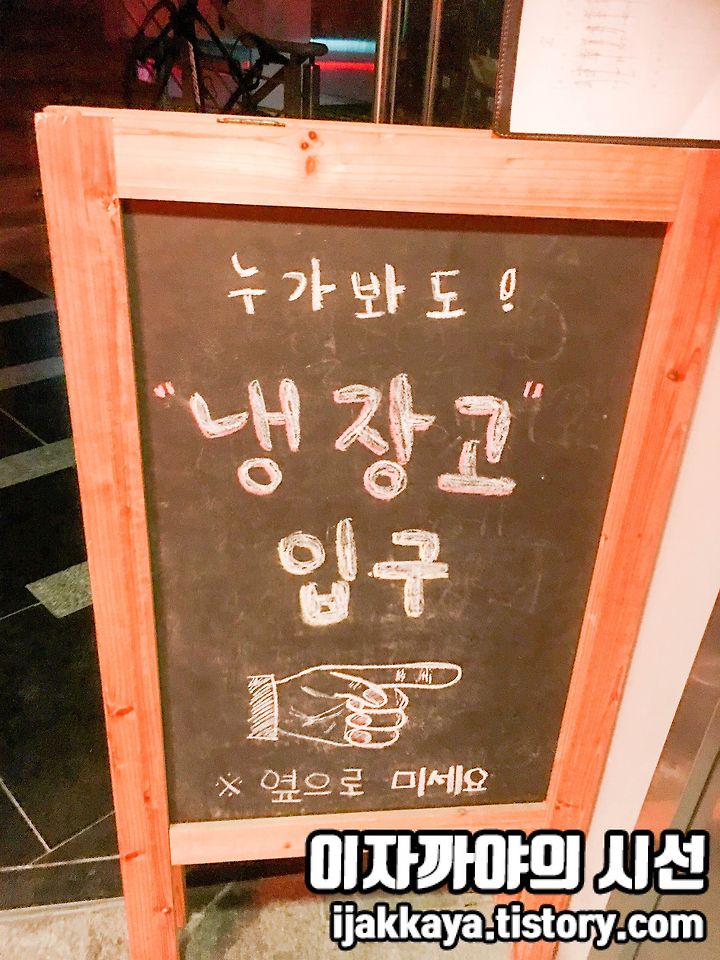 누가봐도!
"냉장고"
입구
※ 옆으로 미세요
이자까야의 시선
ijakkaya.tistory.com